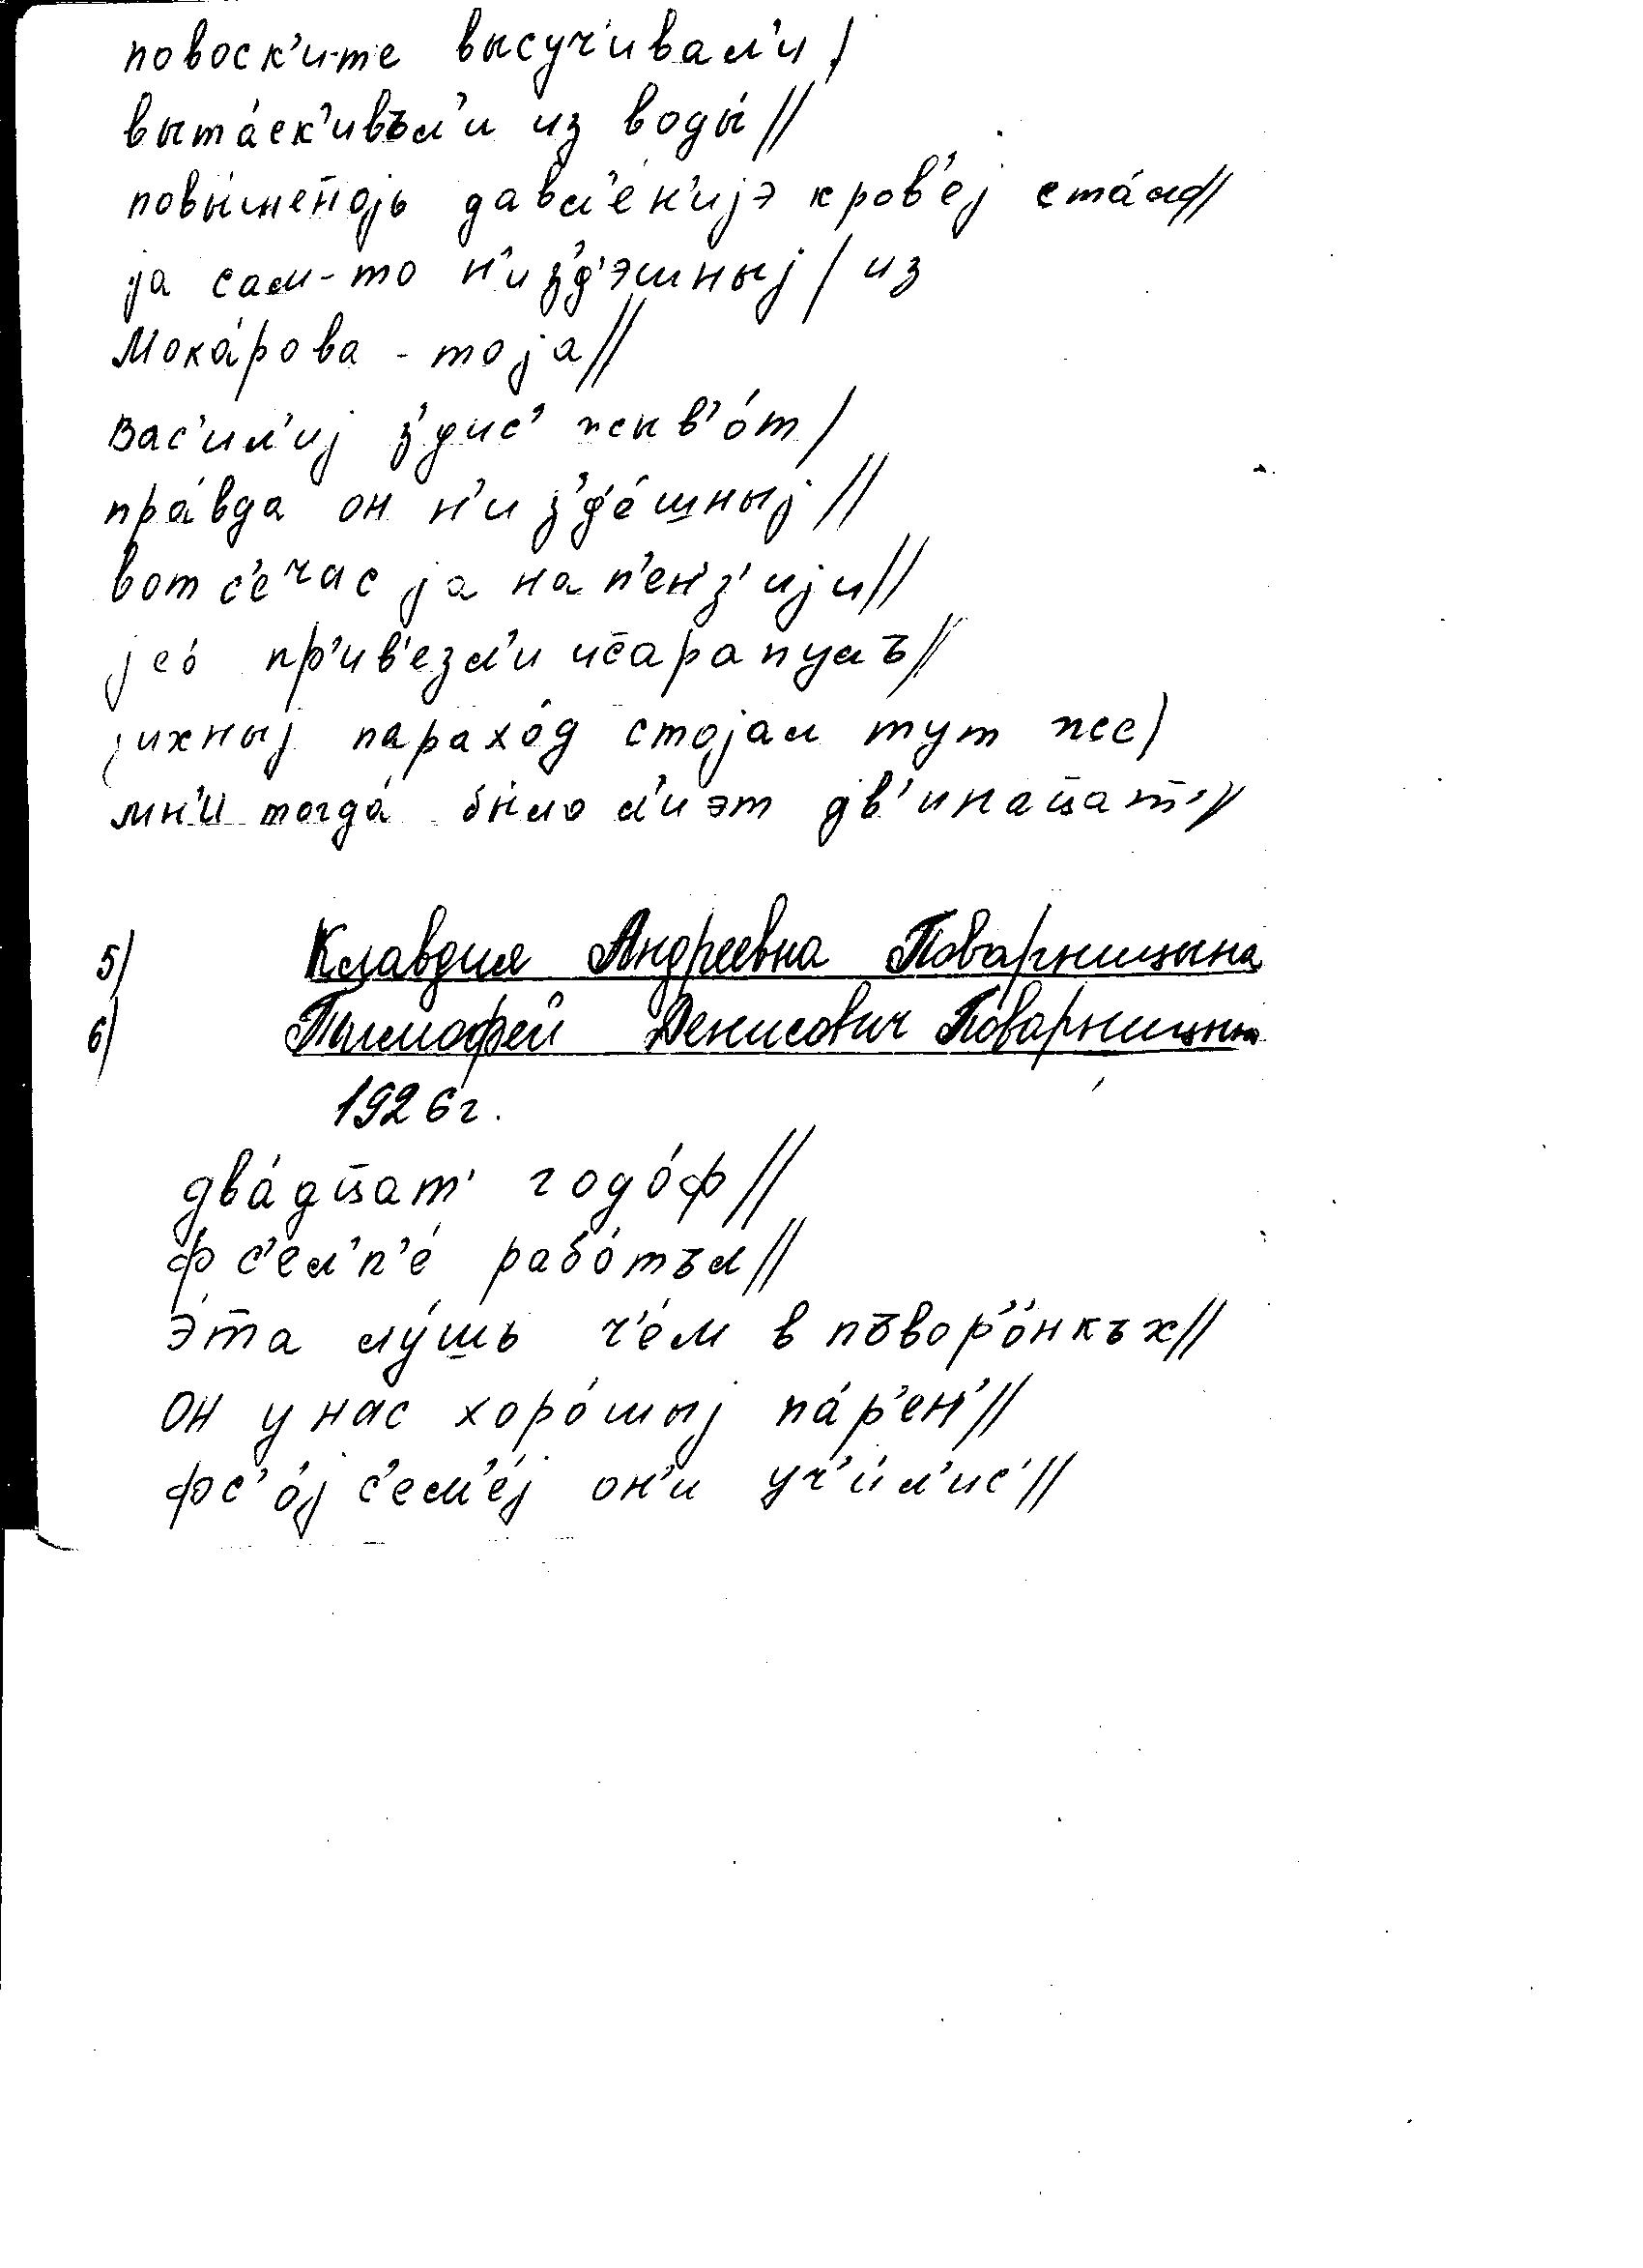 повоск'и-те высуч'ивал'и /
выта́ск'ивъл'и из воды́ //
повы́шен̄ојь давл'е́н'ијэ кров'еј ста́ло //
ја сам-то н'и з'д'эшныј / из
Мока́рова - то ја //
Вас'ил'иј з'дис' жыв'о́т /
пра́вда он н'и з'д'е́шныј //
вот с'ечас ја на п'ен'з'ији //
јео́ пр'ив'езл'и ис̄арапулъ //
јихныј парахо́д стојал тут же /
мн'и тогда́ бы́ло л'иэт дв'инац̄ат' //
5) Клавдия Андреевна Поварницына
6) Тимофей Денисович Поварницын
1926 г.
два́дц̄ат' годо́ф //
ф с'ел'п'е́ рабо́тъл //
э́та лу́шь ч'е́м в пъвор'о́нкъх //
он у нас хоро́шыј па́р'ен' //
фс'о́ј с'ем'е́ј он'и уч'и́л'ис' //